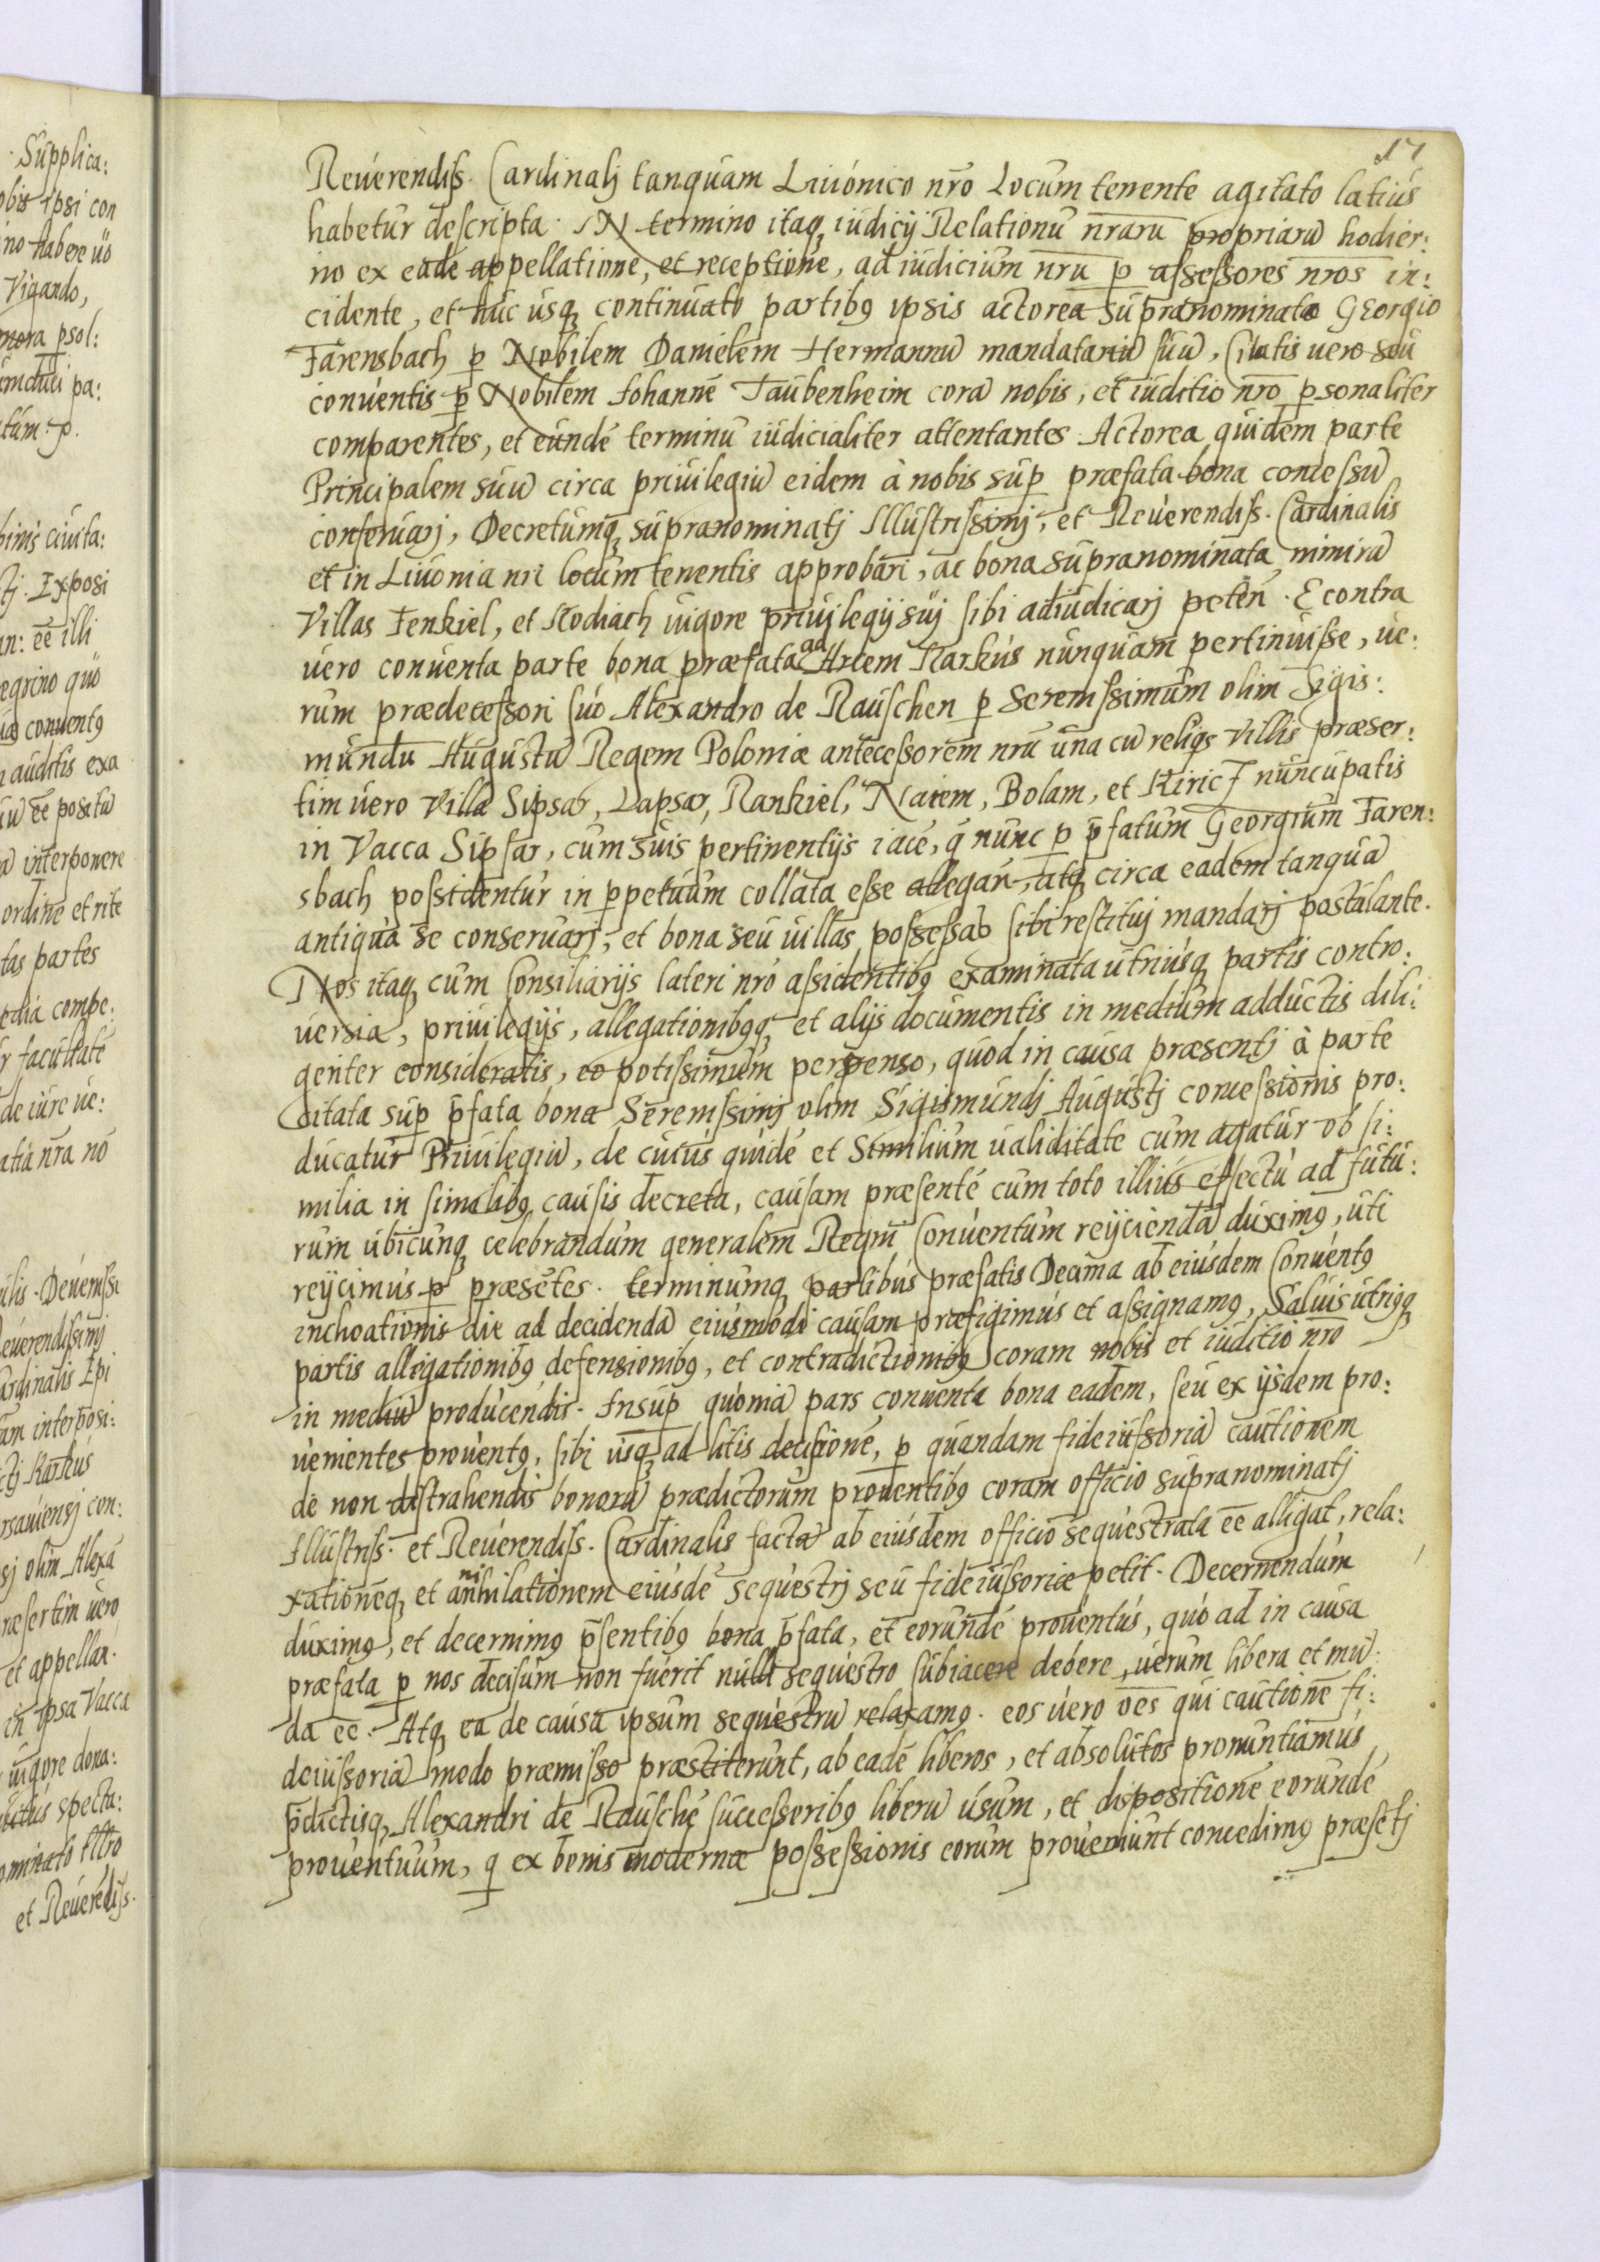 17
Reuerendiſs. Cardinalj tanquam Liuonico nr̄o Locum tenente agitato latius
habetur deſcripta. IN termino itaq, iudicij Relationū nr̄arū propriarū hodier:
no ex eadē appellatione, et receptione, ad iudicium nr̄ū p̱ aſseſsores nr̄os in:
cidente, et huc usq, continuato partibꝯ ipsis actorea supranominato GEorgio
Farensbach p̱ Nobilem Danielem Hermannū mandatariū ſuū, Citatis uero seu
conuentis p̱ Nobilem Iohannē Taubenheim corā nobis, et iuditio nr̄o p̱sonaliter
comparentes, et eundē terminū iudicialiter attentantes. Actorea quidem parte
Principalem suū circa priuilegiū eidem à nobis sup̱ præfata bona conceſsū
conſeruarj, Decretumq, supranominatj Illuſtriſsimj, et Reuerendiſs. Cardinalis
et in Liuonia nr̄i locum tenentis approbari, ac bona supranominata nimirū
Villas Fenkiel, et Nodiach uigore priuilegij suj ſibi adiudicarj peteñ. E contra
uero conuenta parte bona præfata ad Arcem Karkus nunquam pertinuiſse, ue:
rum prædeceſsori ſuo Alexandro de Rauſchen p̱ Sereniſsimum olim Sigis:
mundū Auguſtū Regem Poloniæ anteceſsorem nr̄ū una cū reliqs Villis præser:
tim uero Villa Sipsar, Lapsar, Rankiel, Naiem, Bolam, et Kirict nuncupatis
in Vacca Sipſar, cum suis pertinentijs iaceñ, q̄ nunc p̱ p̄fatum Georgium Faren:
sbach poſsidentur in p̱petuum collata eſse allegañ, atq, circa eadem tanquā
antiqua se conseruarj, et bona seu uillas poſseſsas ſibi reſtituj mandarj poſtulante.
Nos itaq, cum Conſiliarijs lateri nr̄o aſsidentibꝯ examinata utriusq, partis contro:
uersia, priuilegijs, allegationibꝯq, et alijs documentis in medium adductis dili:
genter consideratis, eo potiſsimum perpenso, quod in causa præsentj à parte
Citata sup̱ p̄fata bona Sereniſsimj olim Sigismundj Auguſtj conceſsionis pro:
ducatur Priuilegiū, de cuius quidē et Similium ualiditate cum agatur ob ſi:
milia in ſimilibꝯ cauſis decreta, cauſam præſentē cum toto illius effectu ad futu:
rum ubicunq, celebrandum generalem Regni Conuentum reijciendā duximꝯ, uti
reijcimus p̱ præsētes. terminumq, partibus præfatis Decima ab eiusdem Conuentꝯ
inchoationis die ad decidendā eiusmodi cauſam præfigimus et aſsignamꝯ, Saluis utriꝯq,
partis allegationibꝯ defensionibꝯ, et contradictionibꝯ coram nobis et iuditio nr̄o
in mediū producendis. Inſup̱ quoniā pars conuenta bona eadem, ſeu ex ijsdem pro:
uenientes prouentꝯ, ſibi usq, ad litis deciſionē, p̱ quandam fideiuſsoriā cautionem
de non diſtrahendis bonorū prædictorum prouentibꝯ coram officio supranominatj
Illuſtriſs. et Reuerendiſs. Cardinalis factā ab eiusdem officio sequeſtrata eē alligat, rela:
xationēq, et annihilationem eiusdē sequeſtrj seu fideiuſsoriæ petit. Decernendum
duximꝯ, et decernimꝯ p̄ſentibꝯ bona p̄fata, et eorundē prouentus, quo ad in cauſa
præfata p̱ nos deciſum non fuerit nulli sequeſtro ſubiacere debere, uerum libera et mū:
da eē. Atq, ea de cauſa ipsum sequeſtrū relaxamꝯ. eos uero oēs qui cautionē fi:
deiuſsoriā modo præmiſso præſtiterunt, ab eadē liberos, et absolutos pronuntiamus,
p̄dictisq, Alexandri de Rauſchē ſucceſsoribꝯ liberū uſum, et dispoſitionē eorundē
prouentuum, q̄ ex bonis modernæ poſseſsionis eorum proueniunt concedimꝯ præſētj